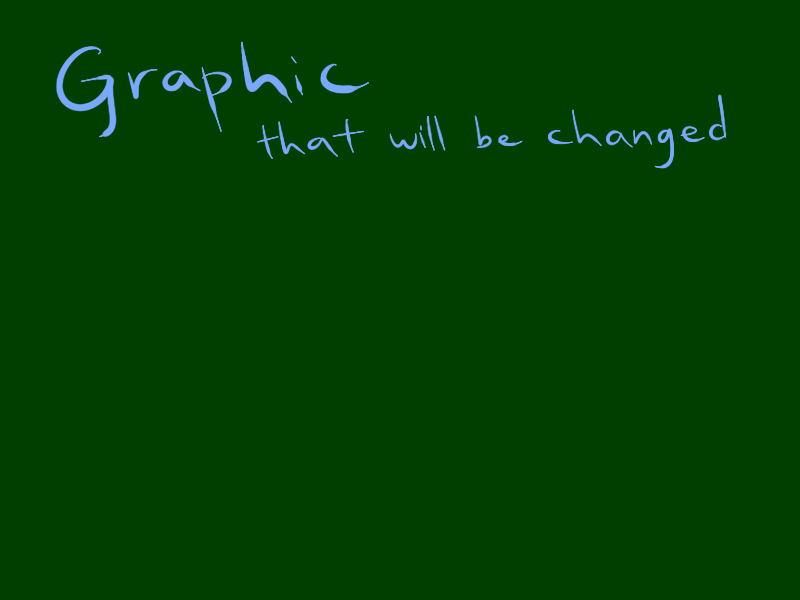 Graphic
that will be changed